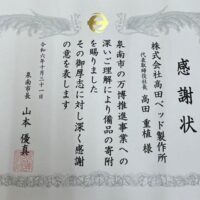 感謝状
株式会社高田ベッド製作所
代表取締役社長 高田 重植 様
泉南市の万博推進事業への
深いご理解により備品の寄附
を賜りました
その御厚志に対し深く感謝
の意を表します
令和六年十月三十一日
泉南市長 山本 優真